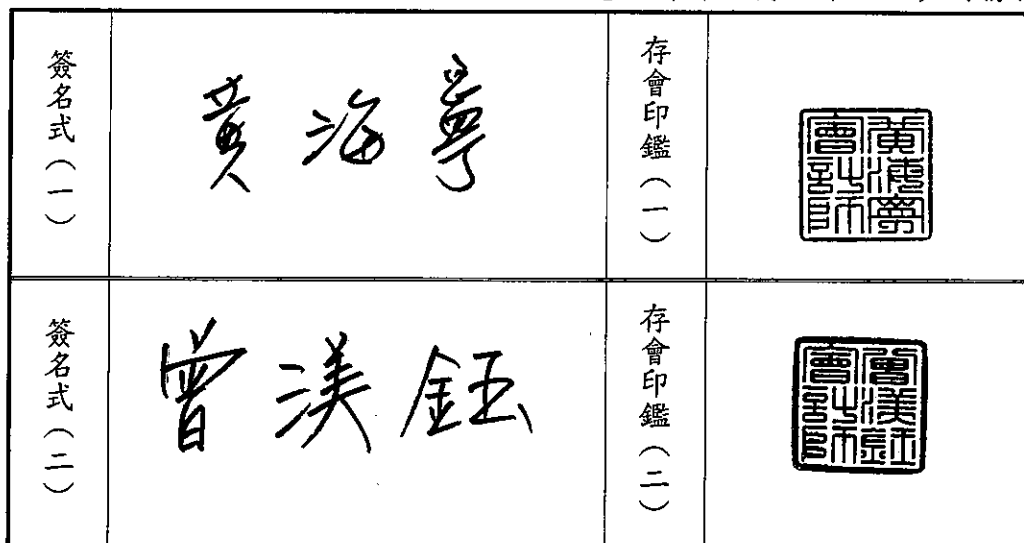 簽名式（一）
黃海寧
存會印鑑（一）
黃海寧會計師
簽名式（二）
曾渼鈺
存會印鑑（二）
曾渼鈺會計師